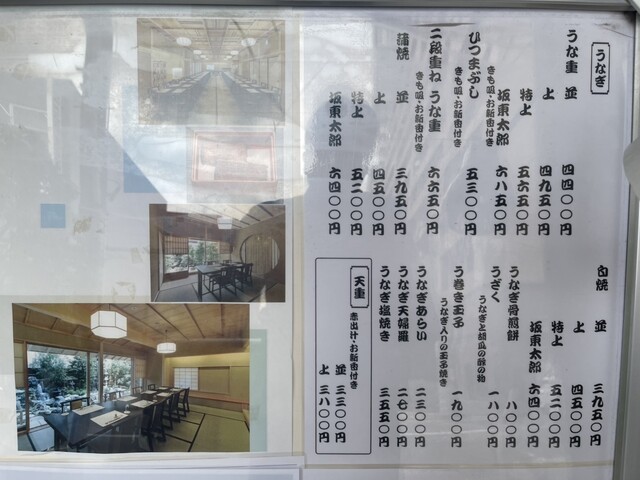 うなぎ
うな重 並 四四〇〇円
上 四九五〇円
特上 五六五〇円
坂東太郎 六八五〇円
きも吸・お新香付き
ひつまぶし 五三〇〇円
きも吸・お新香付き
二段重ね うな重 六六五〇円
きも吸・お新香付き
蒲焼 並 三九五〇円
上 四五〇〇円
特上 五二〇〇円
坂東太郎 六四〇〇円
白焼 並 三九五〇円
上 四五〇〇円
特上 五二〇〇円
坂東太郎 六四〇〇円
うなぎ骨煎餅 八〇〇円
うざく 一八〇〇円
うなぎと胡瓜の酢の物
う巻き玉子 一九〇〇円
うなぎ入りの玉子焼き
うなぎあらい 二三〇〇円
うなぎ天婦羅 二七〇〇円
うなぎ塩焼き 三五五〇円
天重
赤出汁・お新香付き
並 三三〇〇円
上 三八〇〇円